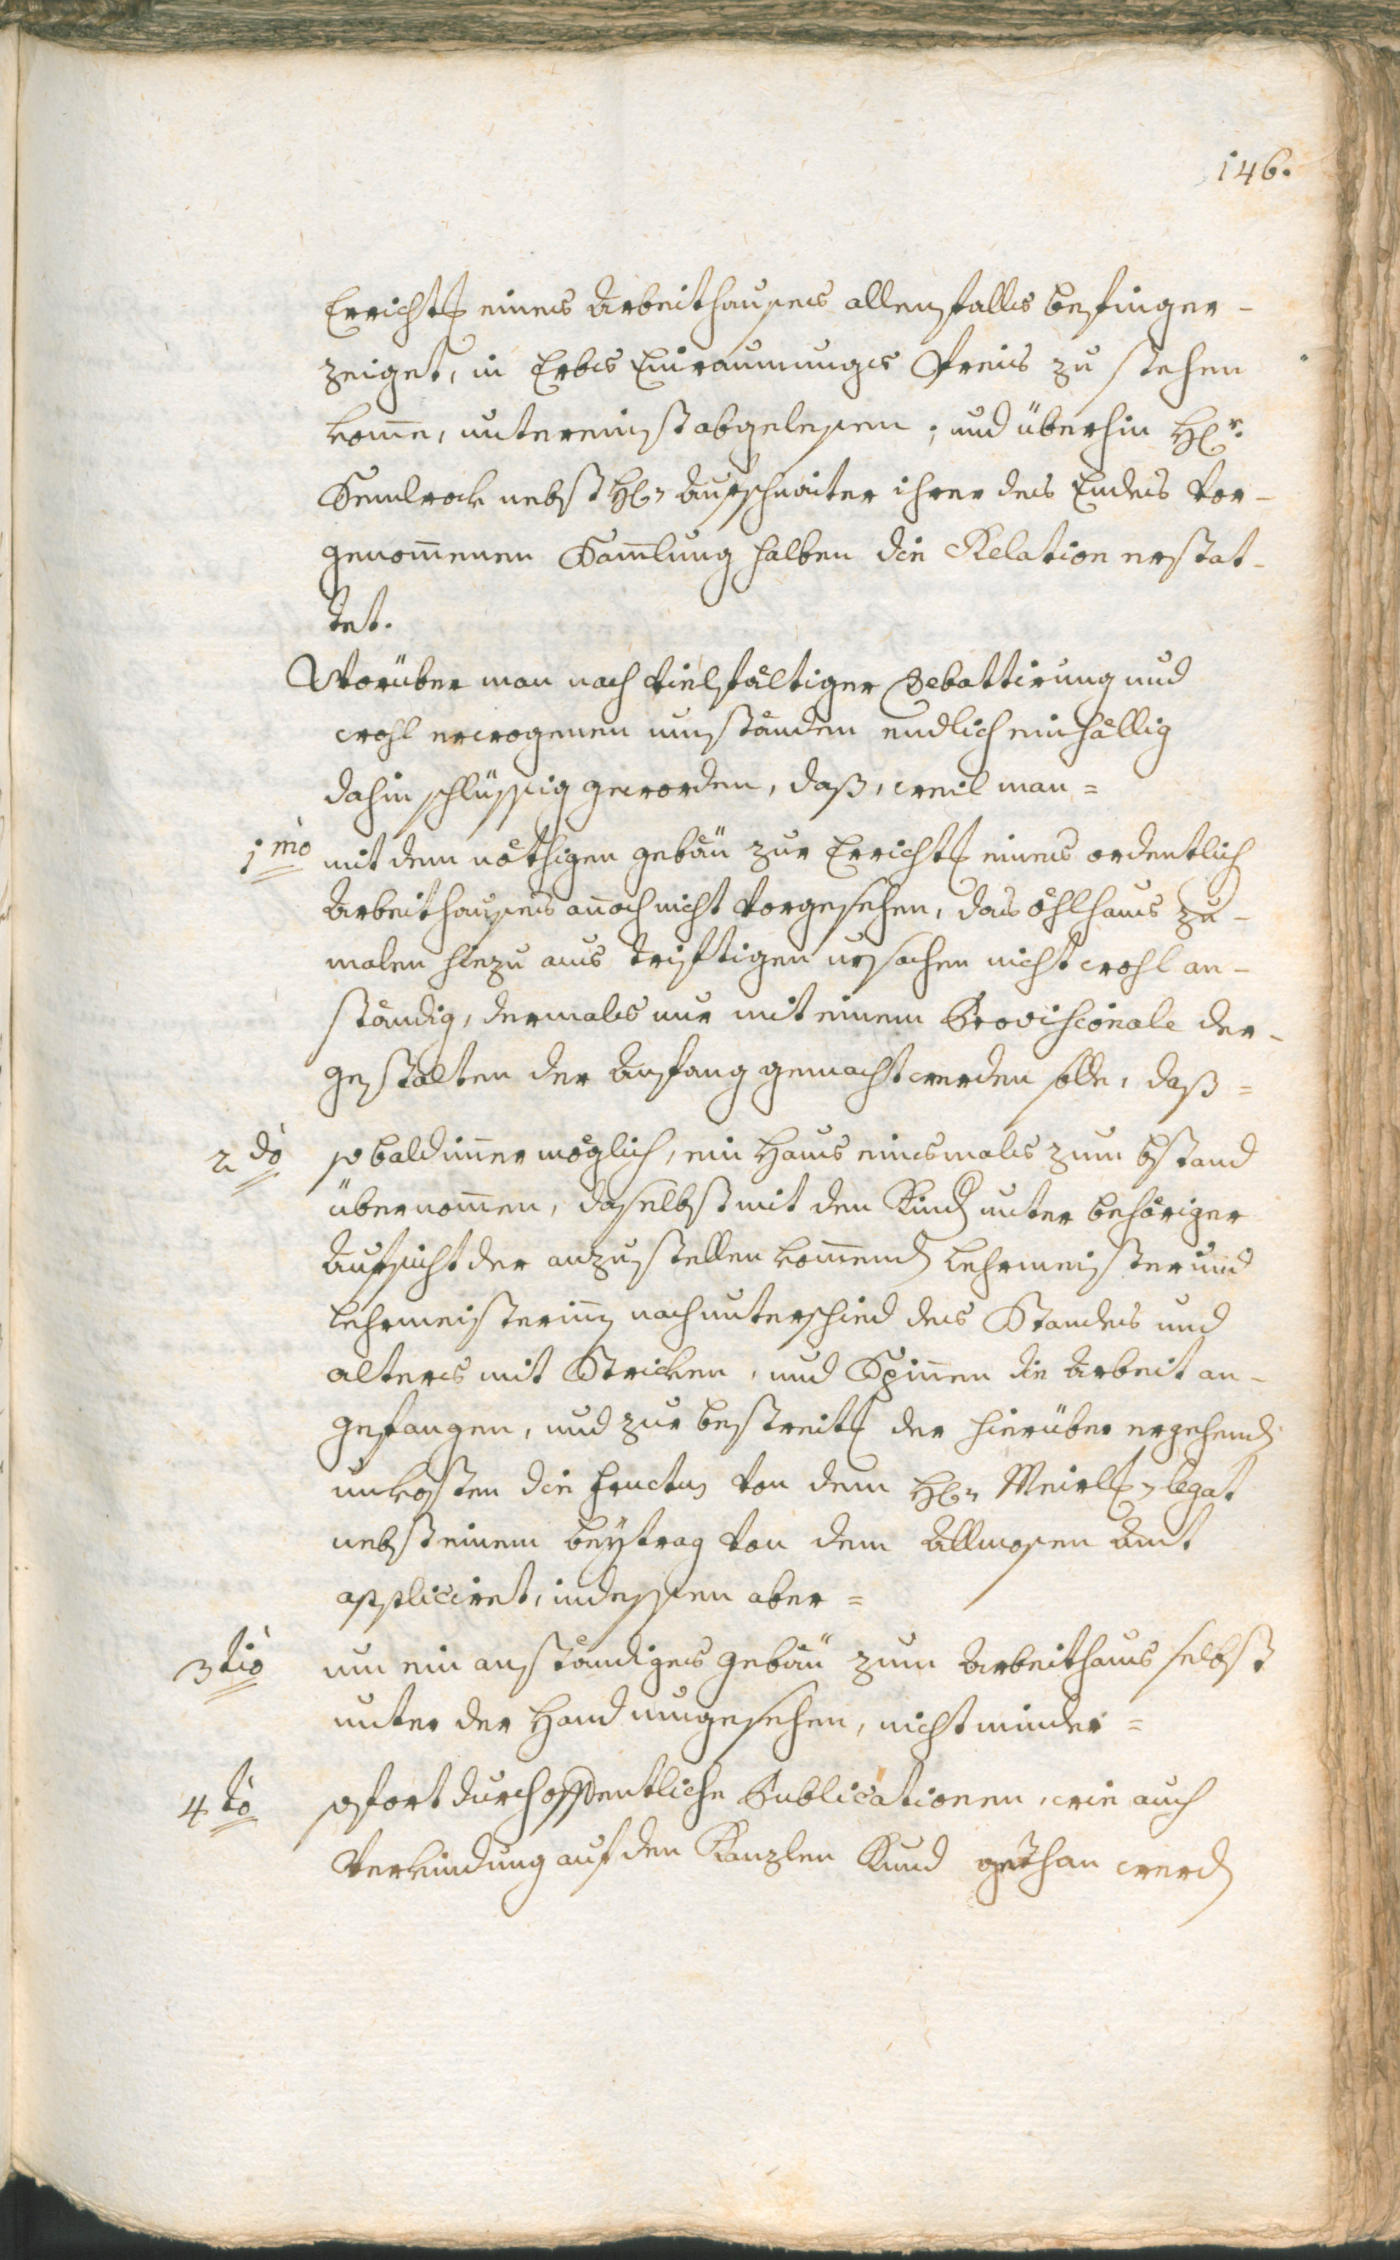 146.
Erricht̃ eines Arbeithauses allenfalls besfinger-
zeiget, in Erbes Einraumungs Preis zu stehen
kome, unter einst abgelesen; und überhin Hr.
Semlrock nebst H: Aufschnaiter ihrer des Endes vor-
genom̄enen Sam̄lung halben die Relation erstat-
tet.
Worüber man nach vielfältiger Debattirung und
wohl erwogenen umständen endlich einhällig
dahin schlüssig geworden, daß, weil man =
1mo mit dem nöthigen gebäu zur Erricht̃ eines ordentlich
Arbeithauses an̄och nicht vorgesehen, das öhlhaus zu-
malen hiezu aus triftigen ursachen nicht wohl an-
ständig, dermals nur mit einem Provisionale der-
gestalten der Anfang gemacht werden solle, daß =
2do so bald im̄er möglich, ein Haus einsmals zum bstand
übernom̄en, daselbst mit den Kind. unter behöriger
Aufsicht der anzustellen kom̄end. Lehrmeister und
Lehrmeisterin̄. nach unterschied des Standes und
alters mit Stricken, und Spin̄en die Arbeit an-
gefangen, und zur bestreit̃ der hierüber ergehend.
unkosten die fructus von dem H: Meirl: legat
nebst einem beÿtrag von dem Allmosen Amt
appliciret, indessen aber =
3tio um ein anständiges gebäu zum Arbeithaus selbst
unter der Hand umgesehen, nicht minder =
4to sofort durch offentliche Publicationen, wie auch
Verkündung auf den Kanzlen Kund gethan werd.